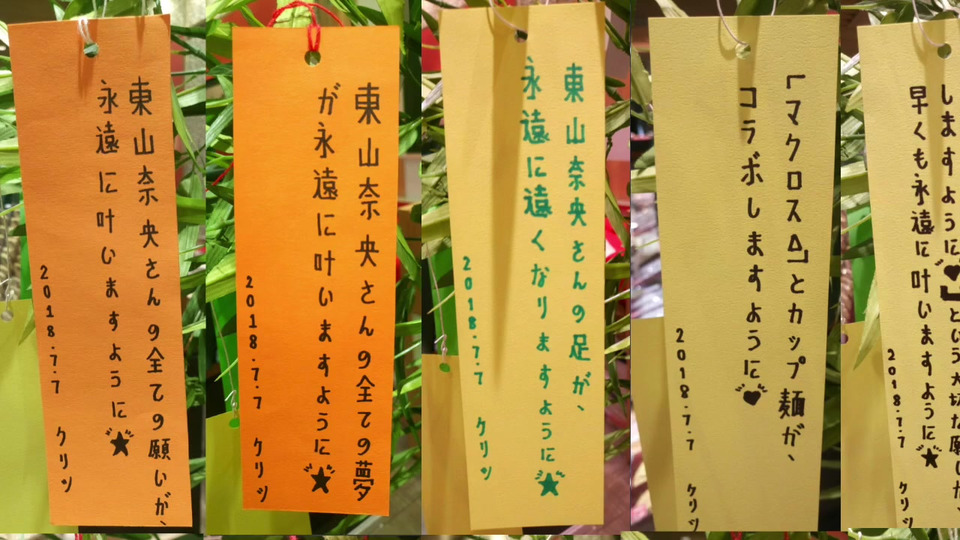 東山奈央さんの全ての願いが、
永遠に叶いますように★
2018.7.7 クリツ
東山奈央さんの全ての夢
が永遠に叶いますように★
2018.7.7 クリツ
東山奈央さんの足が、
永遠に遠くなりますように★
2018.7.7 クリツ
「マクロスΔ」とカップ麺が、
コラボしますように♥
2018.7.7 クリツ
しますように♥」という大切な願いが、
早くも永遠に叶いますように★
2018.7.7 クリツ